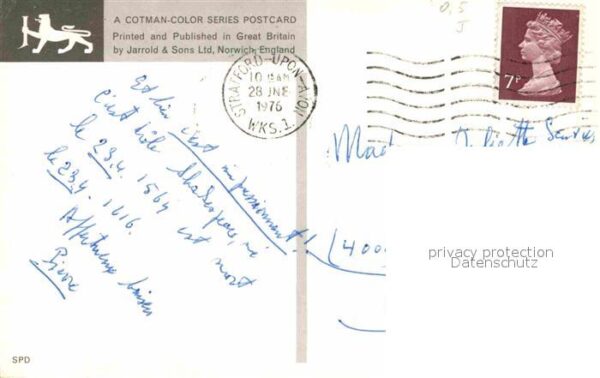 A COTMAN-COLOR SERIES POSTCARD
Printed and Published in Great Britain
by Jarrold & Sons Ltd, Norwich, England
STRATFORD-UPON-AVON
10 AM
28 JNE
1976
WKS. I.
7P
0,5
J
Et bien c'est impressionnant!
c'est bête Shakespeare, né
le 23.4. 1564 est mort
le 23.4. 1616.
Affectueux baisers
Pierre
Mad
4000
privacy protection
Datenschutz
SPD